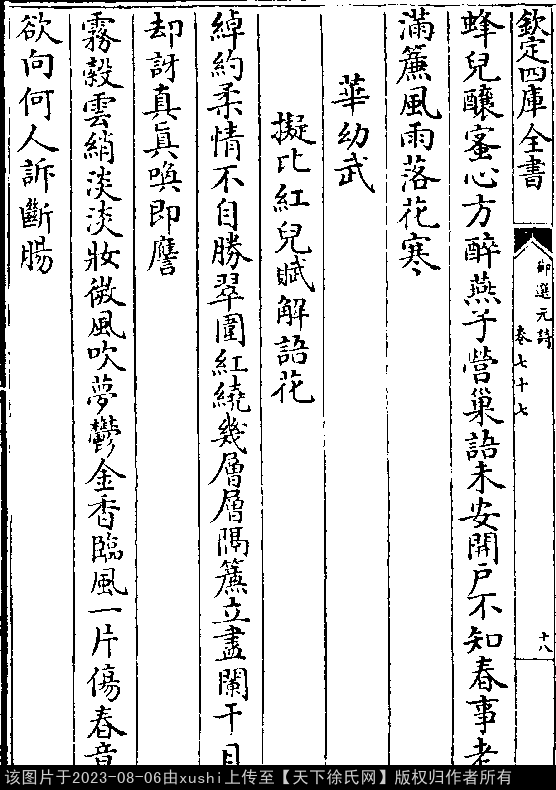 欽定四庫全書
御選元詩
卷七十七
十八
蜂兒釀蜜心方醉燕子營巢語未安開戸不知春事老
滿簾風雨落花寒
華幼武
擬比紅兒賦解語花
綽約柔情不自勝翠圍紅繞幾層層隔簾立盡闌干月
却訝真真喚即譍
霧縠雲綃淡淡妝微風吹夢鬱金香臨風一片傷春意
欲向何人訴斷腸
该图片于2023-08-06由xushi上传至【天下徐氏网】版权归作者所有